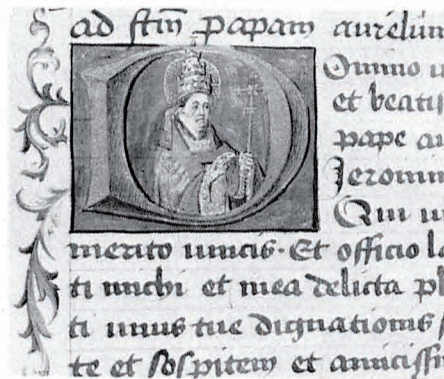 ad ſtm̄ papam aurelium
Omino u
et beatu
pape au
Jeronim
Qui u
merito uincis. Et officio la
ti michi et mea delicta pl
ti unus tue dignationis ſ
te et ſoſpitem et amiciſſi